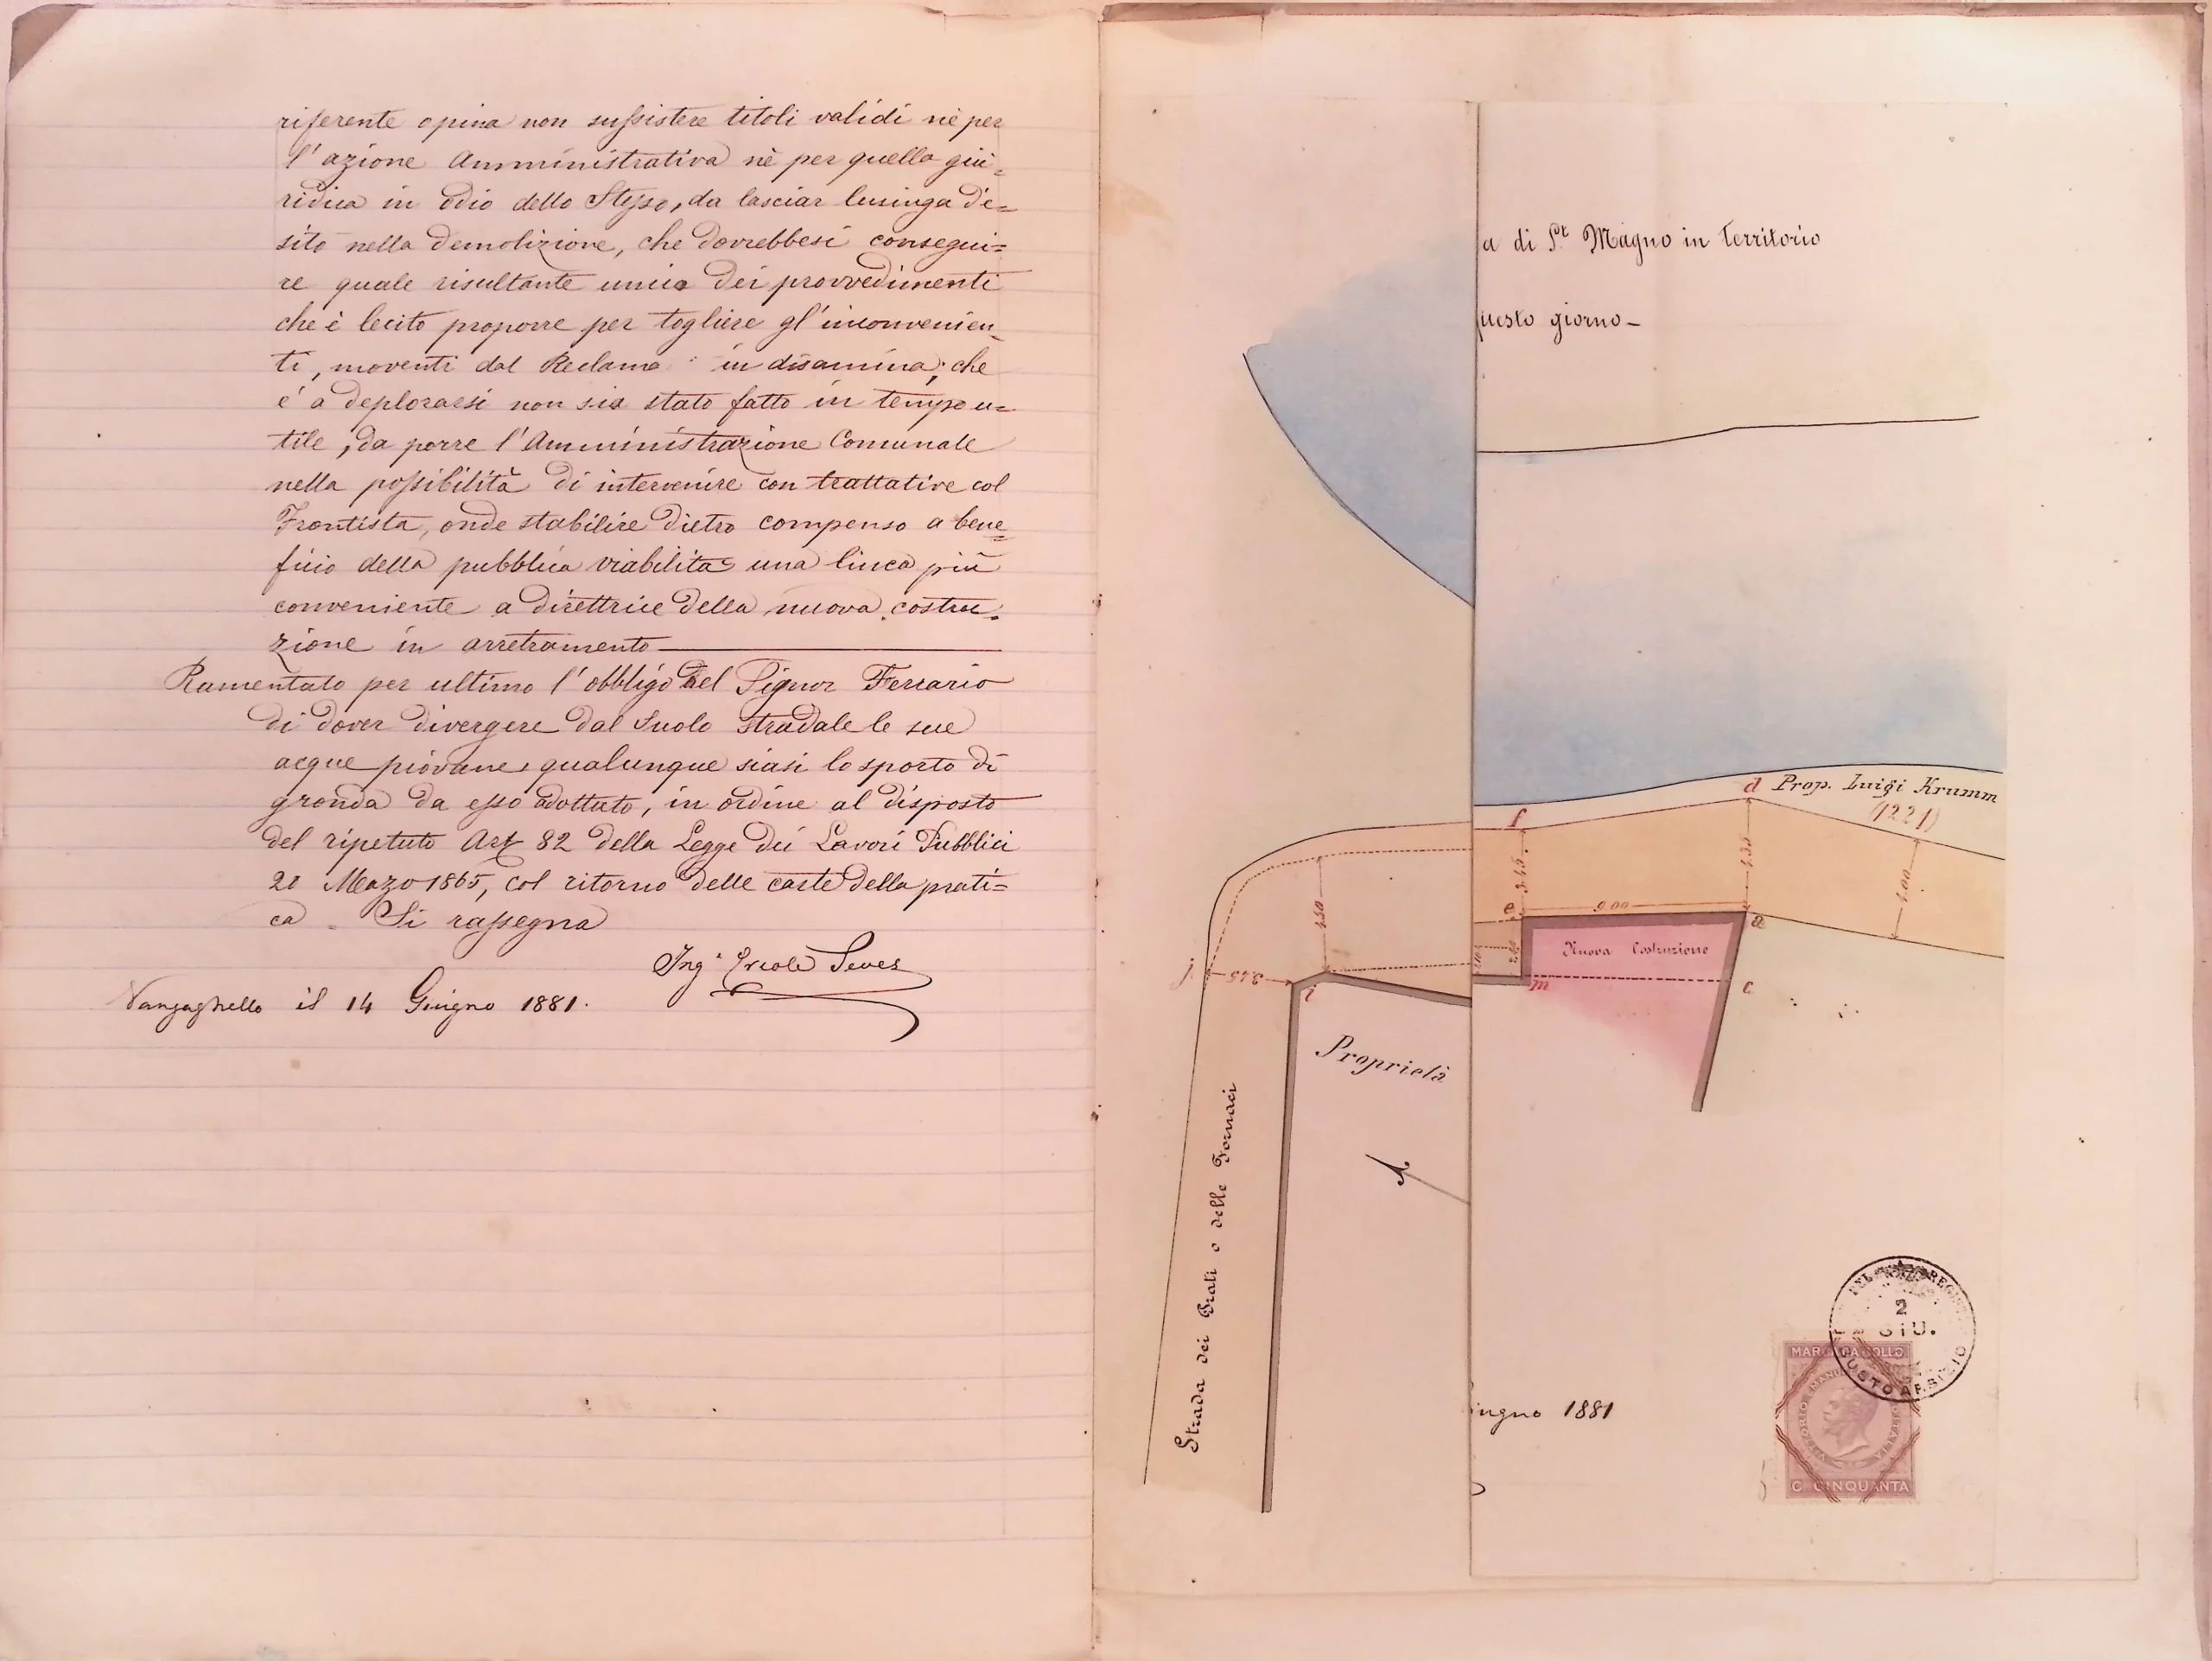 riferente opina non sussistere titoli validi nè per
l'azione Amministrativa nè per quella giu=
ridica in odio dello Stesso, da lasciar lusinga d'e=
sito nella demolizione, che dovrebbesi consegui=
re quale risultante unica dei provvedimenti
che è lecito proporre per togliere gl'inconvenien=
ti, moventi dal Reclamo in disamina; che
è a deplorarsi non sia stato fatto in tempo u=
tile, da porre l'Amministrazione Comunale
nella possibilità di intervenire con trattative col
Frontista, onde stabilire dietro compenso a bene=
ficio della pubblica viabilità una linea più
conveniente a direttrice della nuova costru=
zione in arretramento
Ramentato per ultimo l'obbligo nel Signor Ferrario
di dover divergere dal Suolo stradale le sue
acque piovane, qualunque siasi lo sporto di
gronda da esso adottato, in ordine al disposto
del ripetuto Art 82 della Legge dei Lavori Pubblici
20 Marzo 1865, col ritorno delle carte della prati=
ca - Si rassegna
Ing.e Ercole Seves
Vanzaghello il 14 Giugno 1881.
a di S.t Magno in Territorio
uesto giorno -
d Prop. Luigi Krumm
(1221)
f
3.45
4.35
4.00
e 9.00 a
4.50
Nuova Costruzione
j 3.45 i
m c
Proprietà
Strada dei Prati o delle Fornaci
iugno 1881
DEL REG
2
GIU.
BUSTO ARSIZIO
MARCA DA BOLLO
VITTORIO EMANUELE
C CINQUANTA